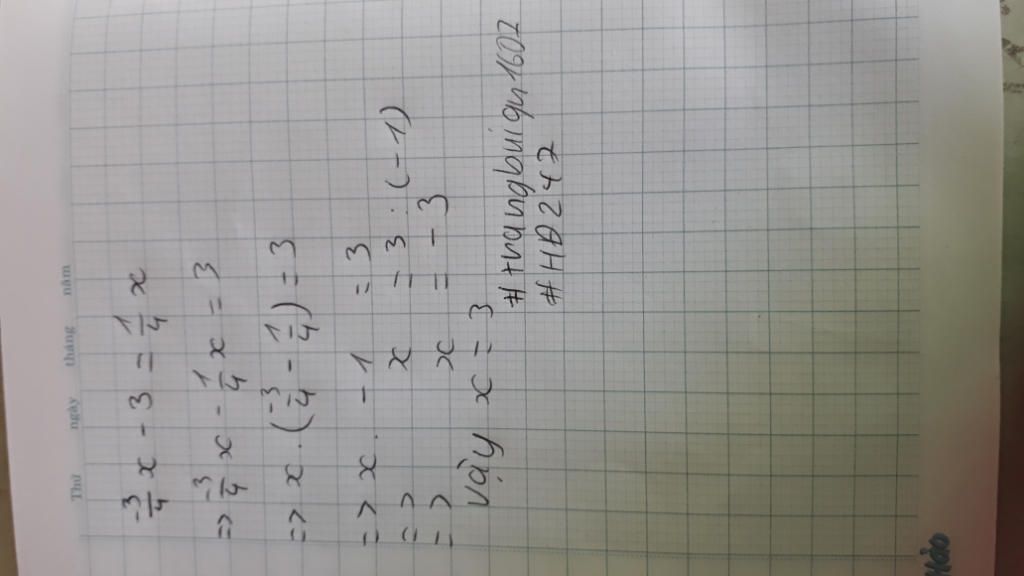 Thứ ngày tháng năm
-3/4 x - 3 = 1/4 x
=> -3/4 x - 1/4 x = 3
=> x . (-3/4 - 1/4) = 3
=> x . -1 = 3
=> x = 3 : (-1)
=> x = -3
Vậy x = -3
#trangbuiqn1602
#HD247